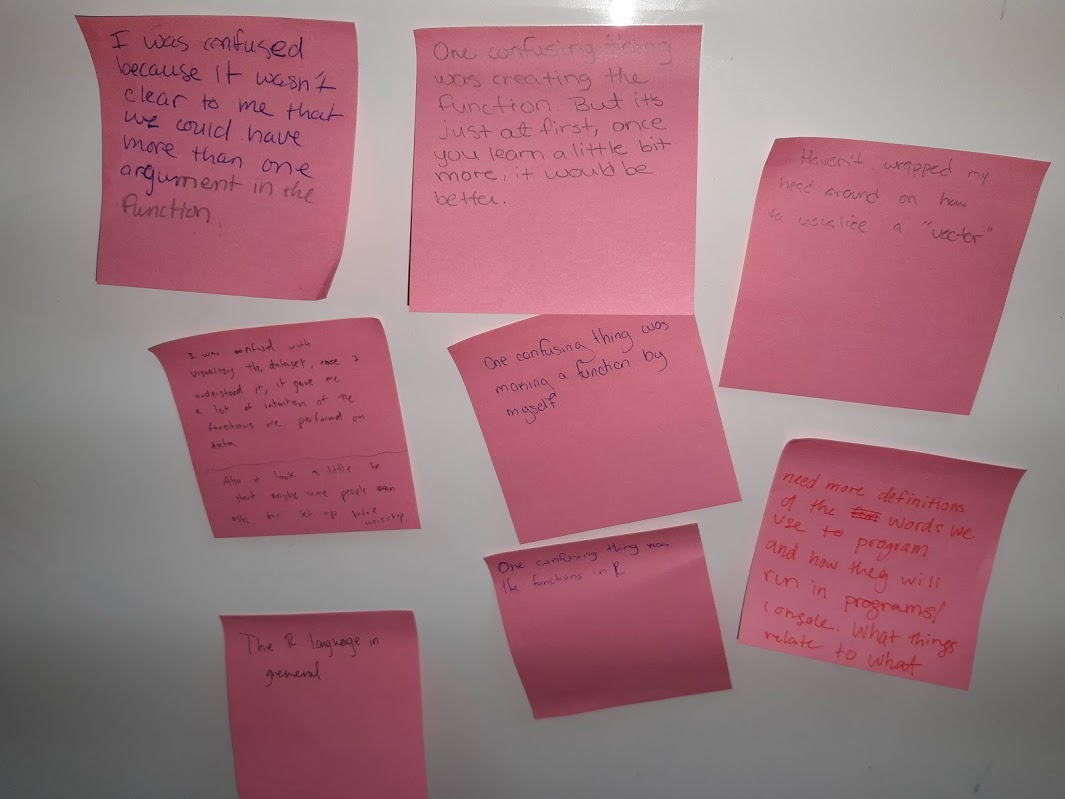 I was confused
because it wasn't
clear to me that
we could have
more than one
argument in the
function.
One confusing thing
was creating the
function. But it's
just at first, once
you learn a little bit
more, it would be
better.
Haven't wrapped my
head around on how
to visualize a "vector"
I was confused with
visualizing the dataset, once I
understood it, it gave me
a lot of intuition of the
functions are performed on
data
Also it took a little to
start maybe some people can
ask for set up before
One confusing thing was
making a function by
myself
need more definitions
of the words we
use to program
and how they will
run in programs/
console. What things
relate to what
One confusing thing was
the functions in R
The R language in
general